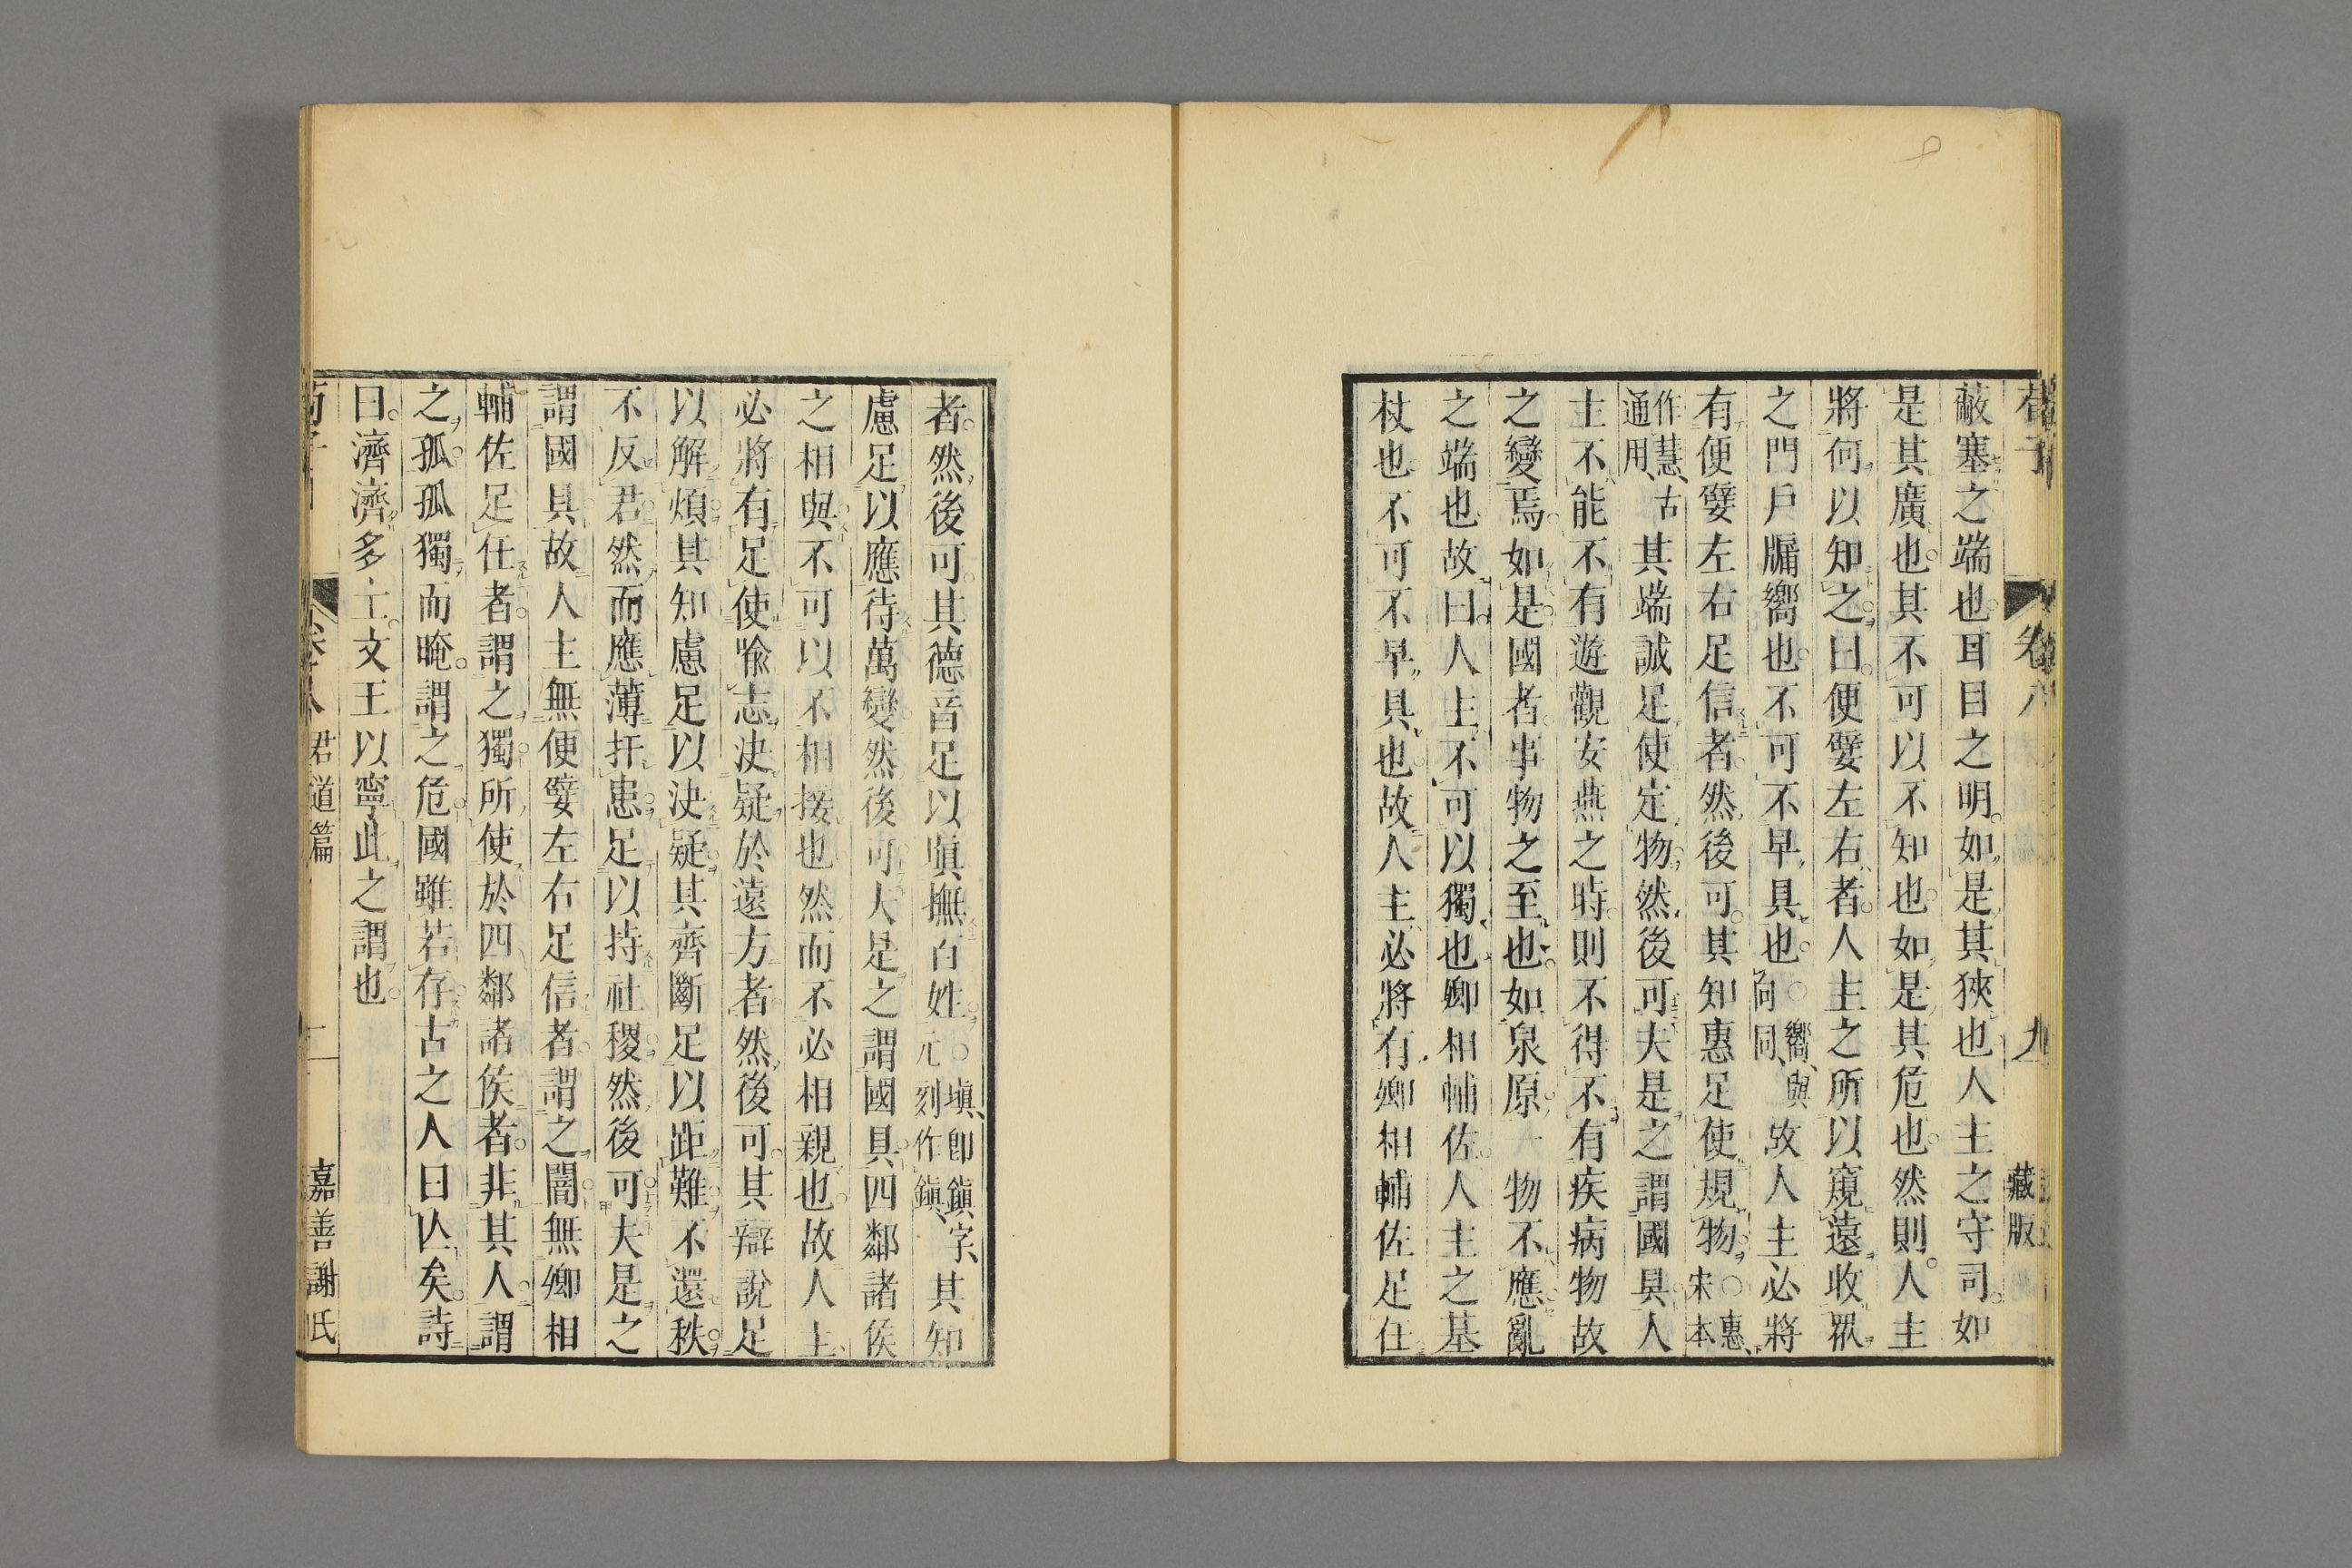 荀子 卷八 九 藏版
蔽塞之端也耳目之明如是其狹也人主之守司如
是其廣也其不可以不知也如是其危也然則人主
將何以知之曰便嬖左右者人主之所以窺遠收衆
之門戶牖嚮也不可不早具也○嚮、與向同、故人主必將
有便嬖左右足信者然後可其知惠足使規物○惠、宋本
作慧、古通用、其端誠足使定物然後可夫是之謂國具人
主不能不有遊觀安燕之時則不得不有疾病物故
之變焉如是國者事物之至也如泉原一物不應亂
之端也故曰人主不可以獨也卿相輔佐人主之基
杖也不可不早具也故人主必將有卿相輔佐足任
者然後可其德音足以塡撫百姓○塡、卽鎭字、元刻作鎭、其知
慮足以應待萬變然後可夫是之謂國具四鄰諸侯
之相與不可以不相接也然而不必相親也故人主
必將有足使喩志決疑於遠方者然後可其辯說足
以解煩其知慮足以決疑其齊斷足以距難不還秩
不反君然而應薄扞患足以持社稷然後可夫是之
謂國具故人主無便嬖左右足信者謂之闇無卿相
輔佐足任者謂之獨所使於四鄰諸侯者非其人謂
之孤孤獨而晻謂之危國雖若存古之人曰亾矣詩
曰濟濟多士文王以寧此之謂也
荀子 卷八 君道篇 嘉善謝氏